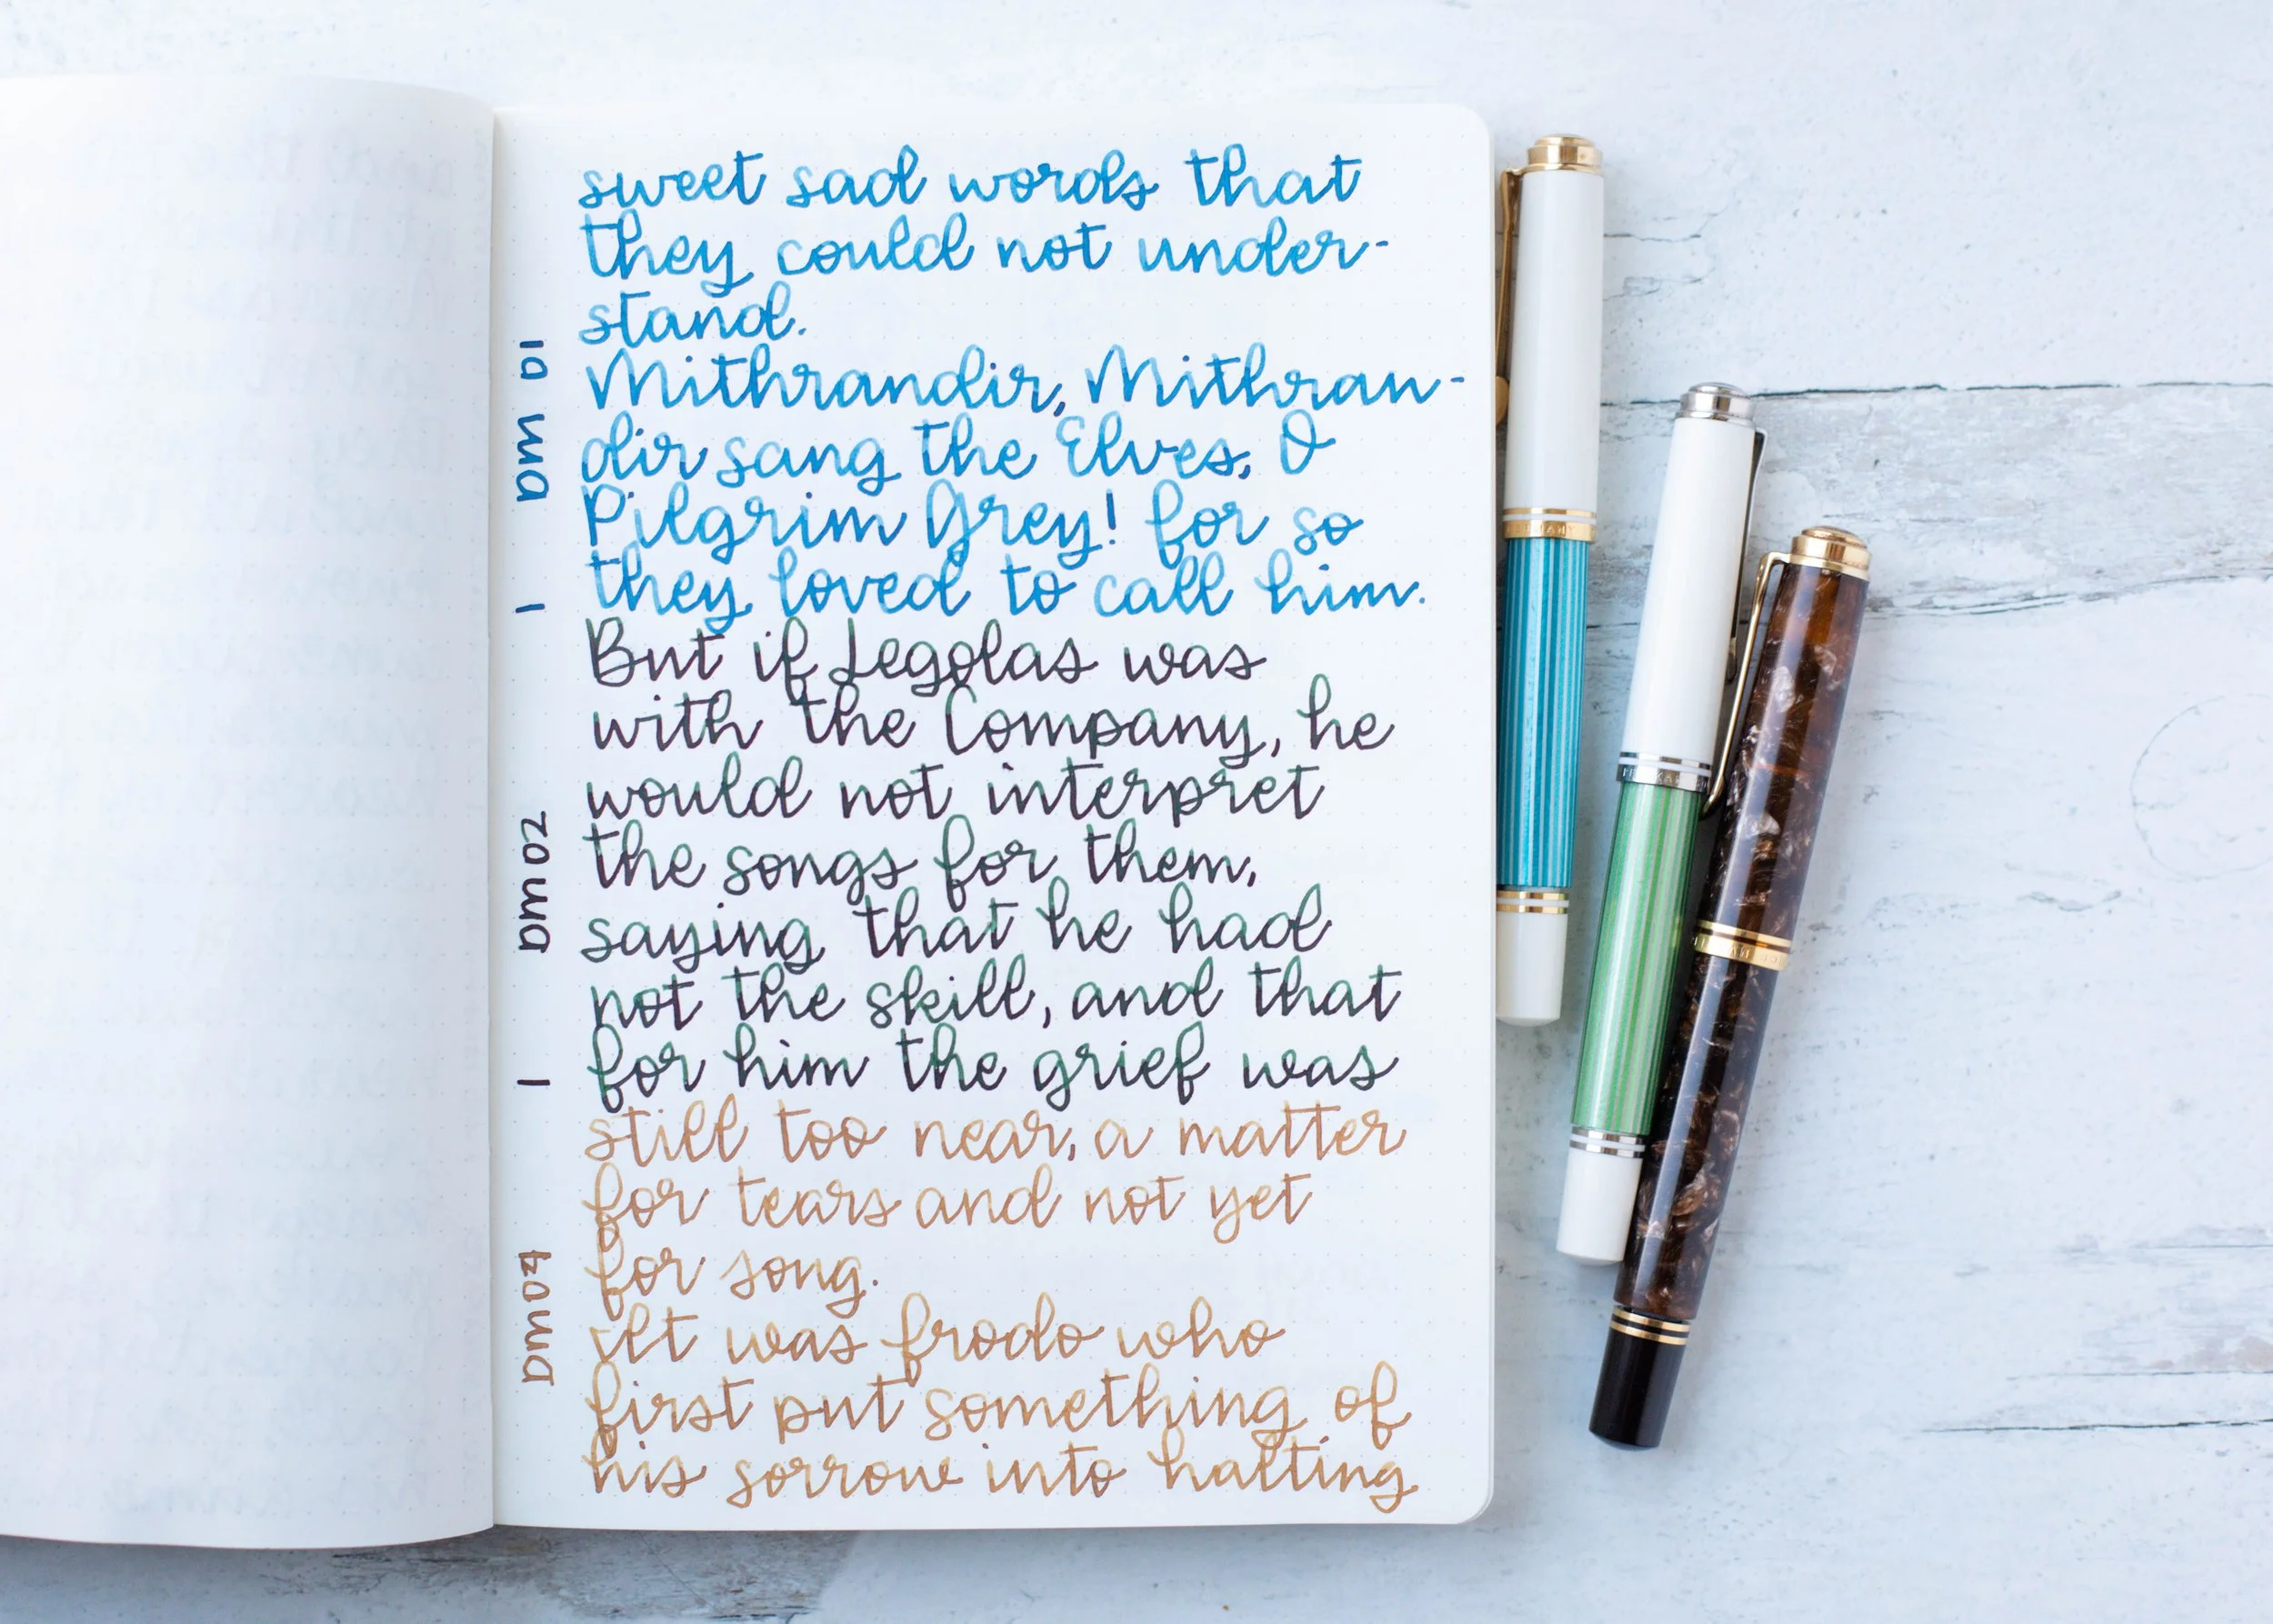 sweet sad words that
they could not under-
stand.
Mithrandir, Mithran-
dir sang the Elves, O
Pilgrim Grey! for so
they loved to call him.
But if Legolas was
with the Company, he
would not interpret
the songs for them,
saying that he had
not the skill, and that
for him the grief was
still too near, a matter
for tears and not yet
for song.
It was frodo who
first put something of
his sorrow into halting
DM 01
DM02
DM04